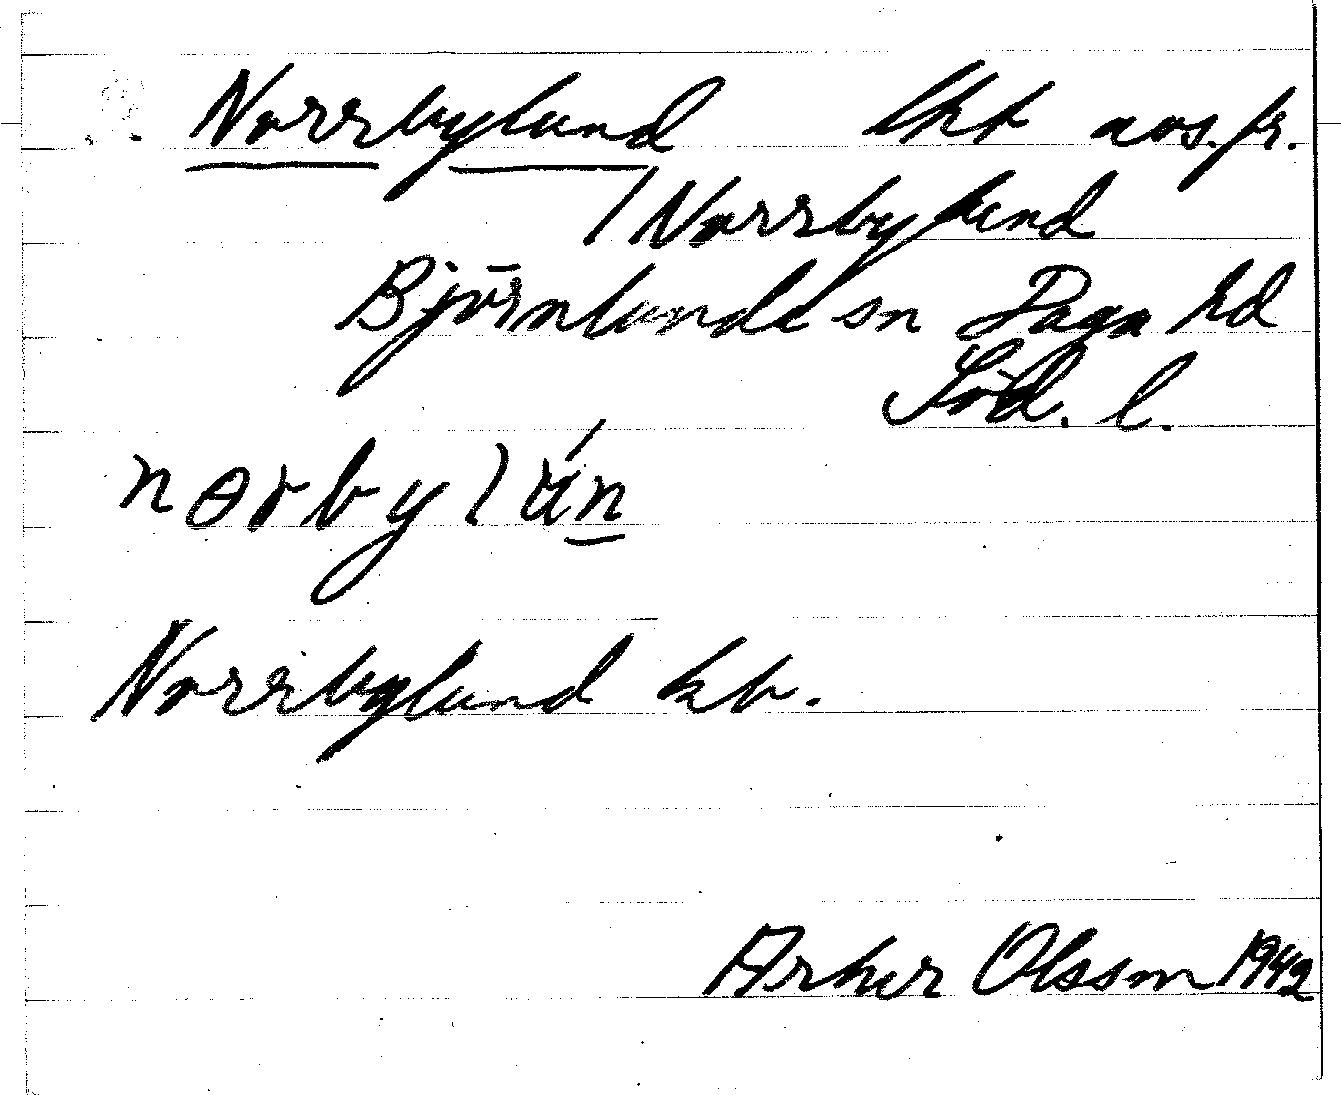 Norrbylund lht avs. fr.
/ Norrbylund
Björnlunda sn Daga hd
Söd. l.
nørbylún
Norrbylund kb.
Arthur Olsson 1942